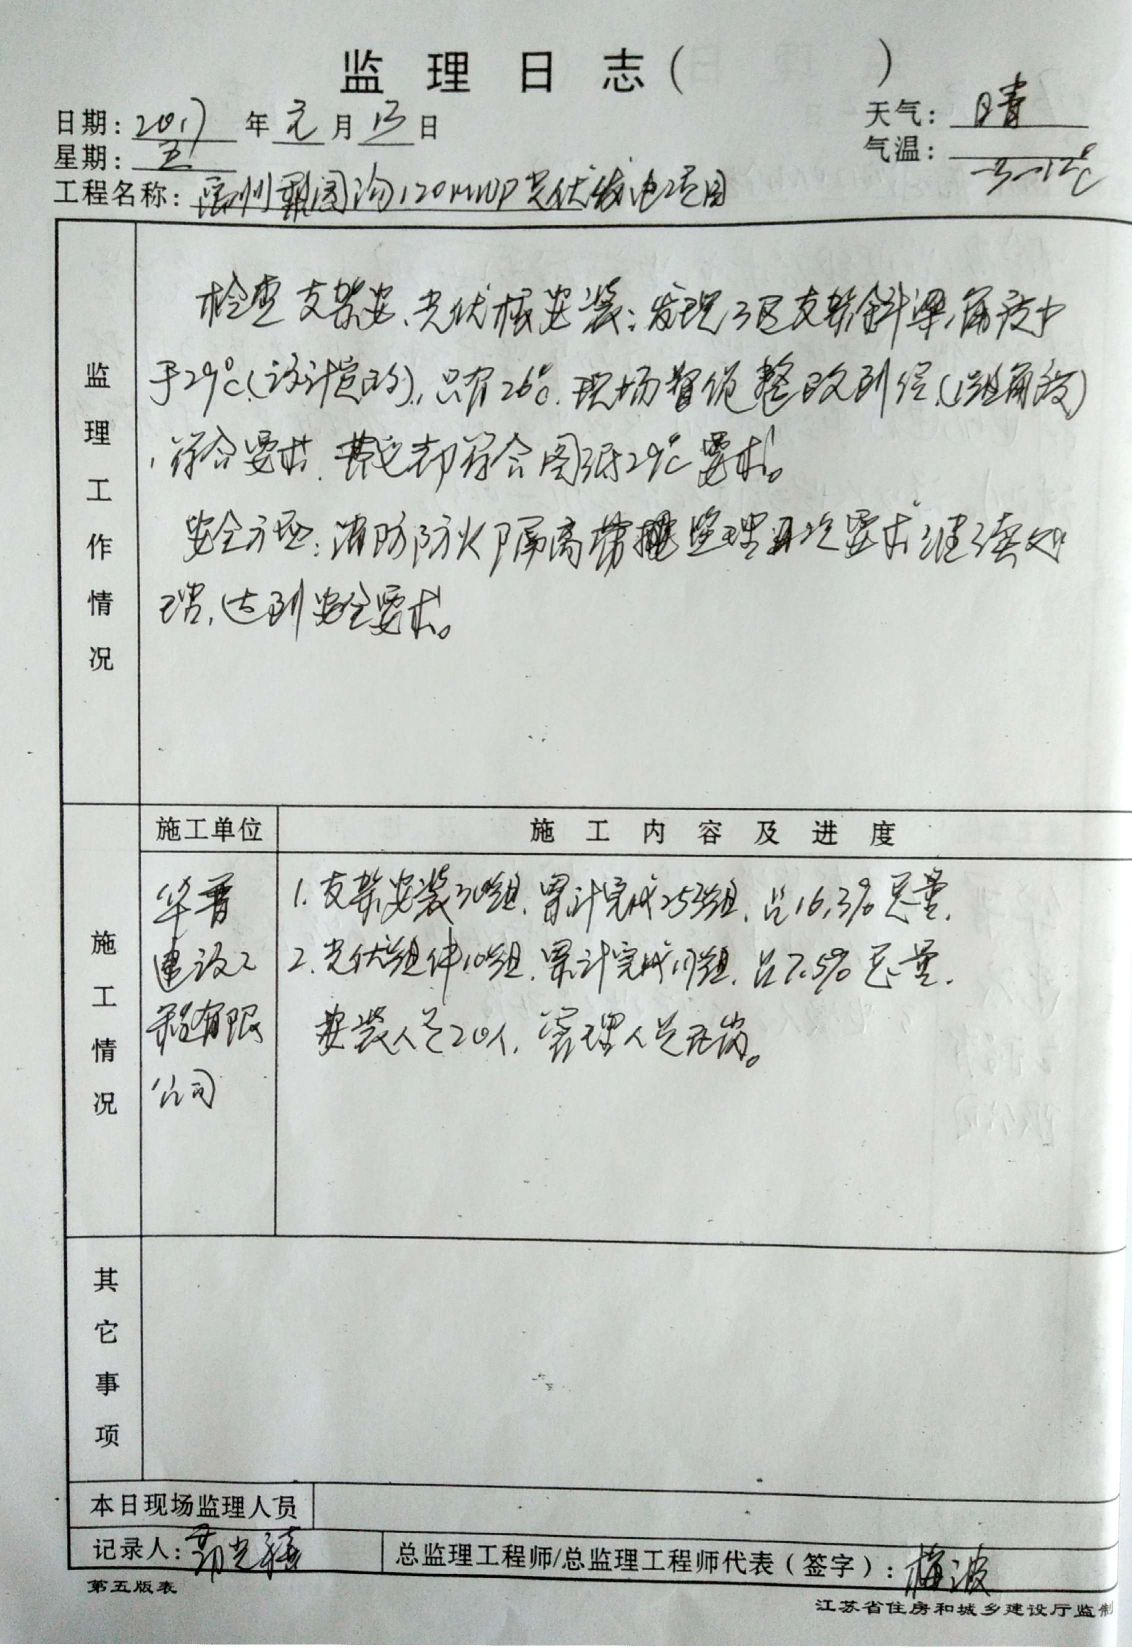 监理日志( )
日期: 2017 年 元 月 13 日
天气: 晴
星期: 五
气温: -3-12℃
工程名称: 禹州 120MWP光伏发电项目
监理工作情况
检查支架安、光伏板安装:发现3区支架斜梁角度小
于29℃(设计 ),只有26℃.现场督促整改到位(1组角度)
,符合要求.其它都符合图纸29℃要求。
安全方面:消防防火隔离带 监理再次要求继续处
理,达到安全要求。
施工单位
施工内容及进度
施工情况
华晋
建设工
程有限
公司
1.支架安装30组.累计完成253组.占16.3%总量.
2.光伏组件10组.累计完成 组.占7.5%总量.
安装人员20人,管理人员在岗。
其它事项
本日现场监理人员
记录人:
总监理工程师/总监理工程师代表(签字): 梅波
第五版表
江苏省住房和城乡建设厅监制